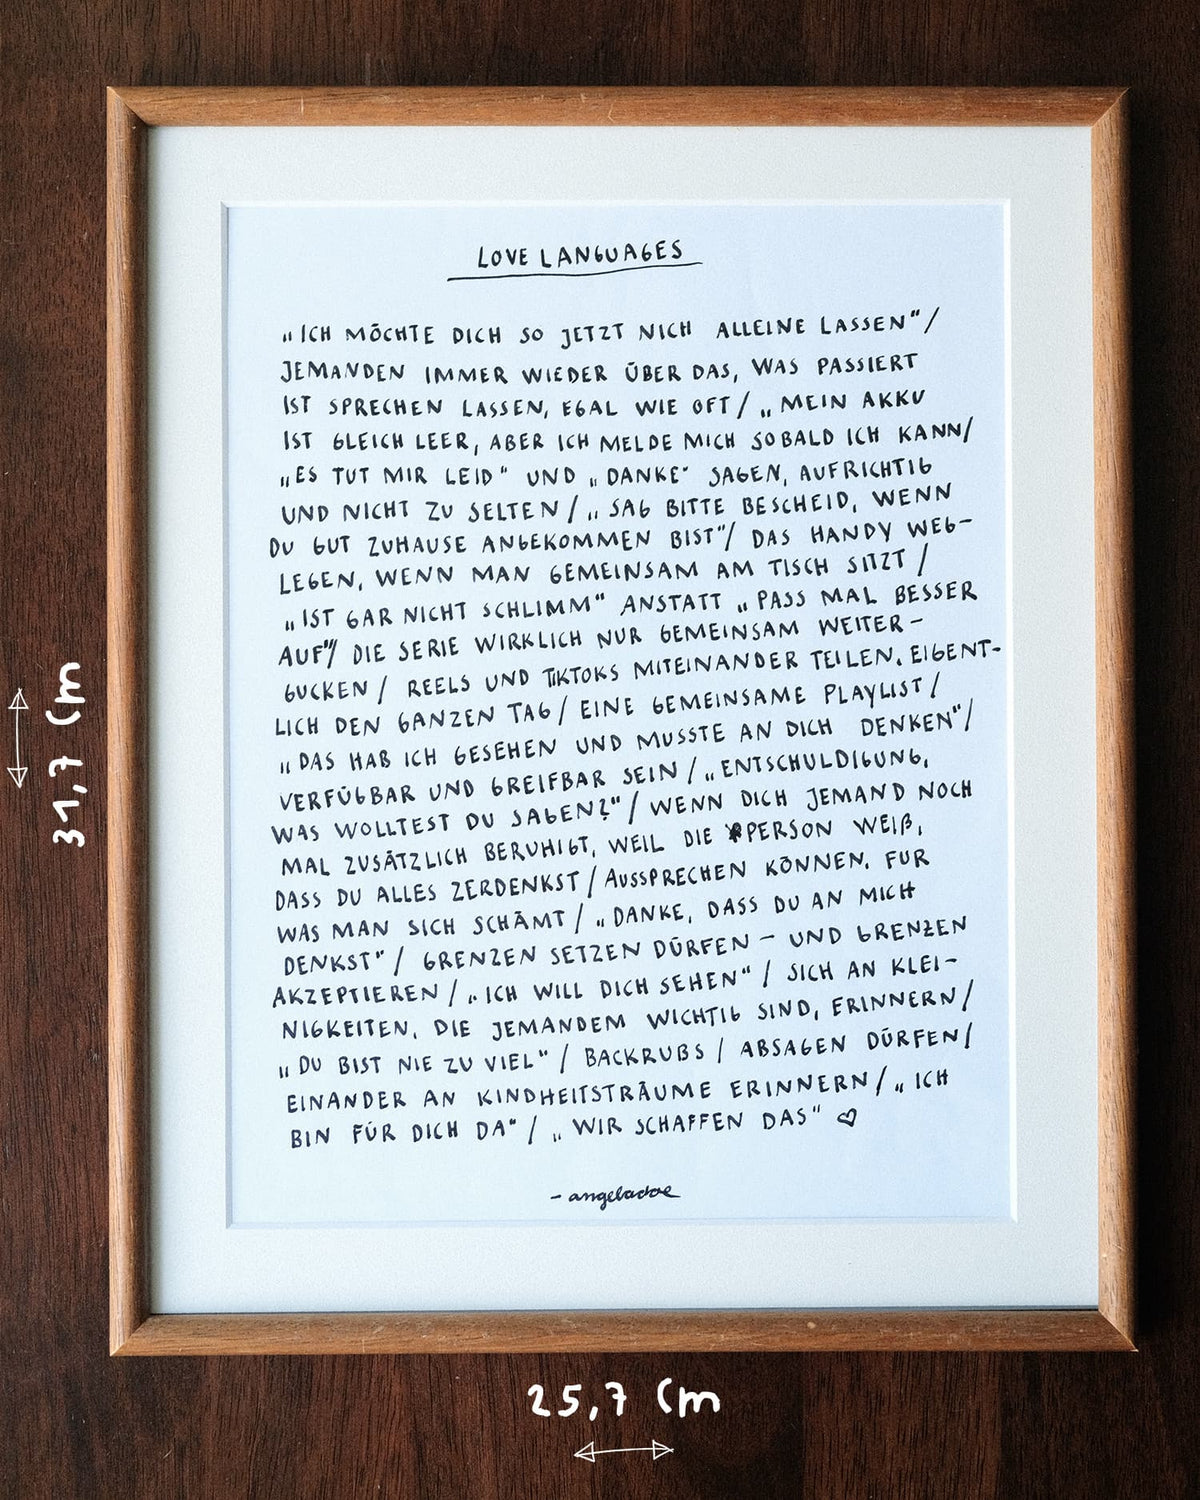 LOVE LANGUAGES
„ICH MÖCHTE DICH SO JETZT NICH ALLEINE LASSEN"/
JEMANDEN IMMER WIEDER ÜBER DAS, WAS PASSIERT
IST SPRECHEN LASSEN, EGAL WIE OFT / „MEIN AKKU
IST GLEICH LEER, ABER ICH MELDE MICH SOBALD ICH KANN/
„ES TUT MIR LEID" UND „DANKE" SAGEN, AUFRICHTIG
UND NICHT ZU SELTEN / „SAG BITTE BESCHEID, WENN
DU GUT ZUHAUSE ANGEKOMMEN BIST"/ DAS HANDY WEG-
LEGEN, WENN MAN GEMEINSAM AM TISCH SITZT /
„IST GAR NICHT SCHLIMM" ANSTATT „PASS MAL BESSER
AUF"/ DIE SERIE WIRKLICH NUR GEMEINSAM WEITER-
GUCKEN / REELS UND TIKTOKS MITEINANDER TEILEN. EIGENT-
LICH DEN GANZEN TAG / EINE GEMEINSAME PLAYLIST /
„DAS HAB ICH GESEHEN UND MUSSTE AN DICH DENKEN"/
VERFÜGBAR UND GREIFBAR SEIN / „ENTSCHULDIGUNG,
WAS WOLLTEST DU SAGEN?" / WENN DICH JEMAND NOCH
MAL ZUSÄTZLICH BERUHIGT, WEIL DIE PERSON WEIß,
DASS DU ALLES ZERDENKST / AUSSPRECHEN KÖNNEN, FUR
WAS MAN SICH SCHÄMT / „DANKE, DASS DU AN MICH
DENKST" / GRENZEN SETZEN DÜRFEN – UND GRENZEN
AKZEPTIEREN / „ICH WILL DICH SEHEN" / SICH AN KLEI-
NIGKEITEN, DIE JEMANDEM WICHTIG SIND, ERINNERN/
„DU BIST NIE ZU VIEL" / BACKRUBS / ABSAGEN DÜRFEN/
EINANDER AN KINDHEITSTRÄUME ERINNERN / „ICH
BIN FÜR DICH DA" / „WIR SCHAFFEN DAS" ♡
- angeladoe
31,7 cm
25,7 cm